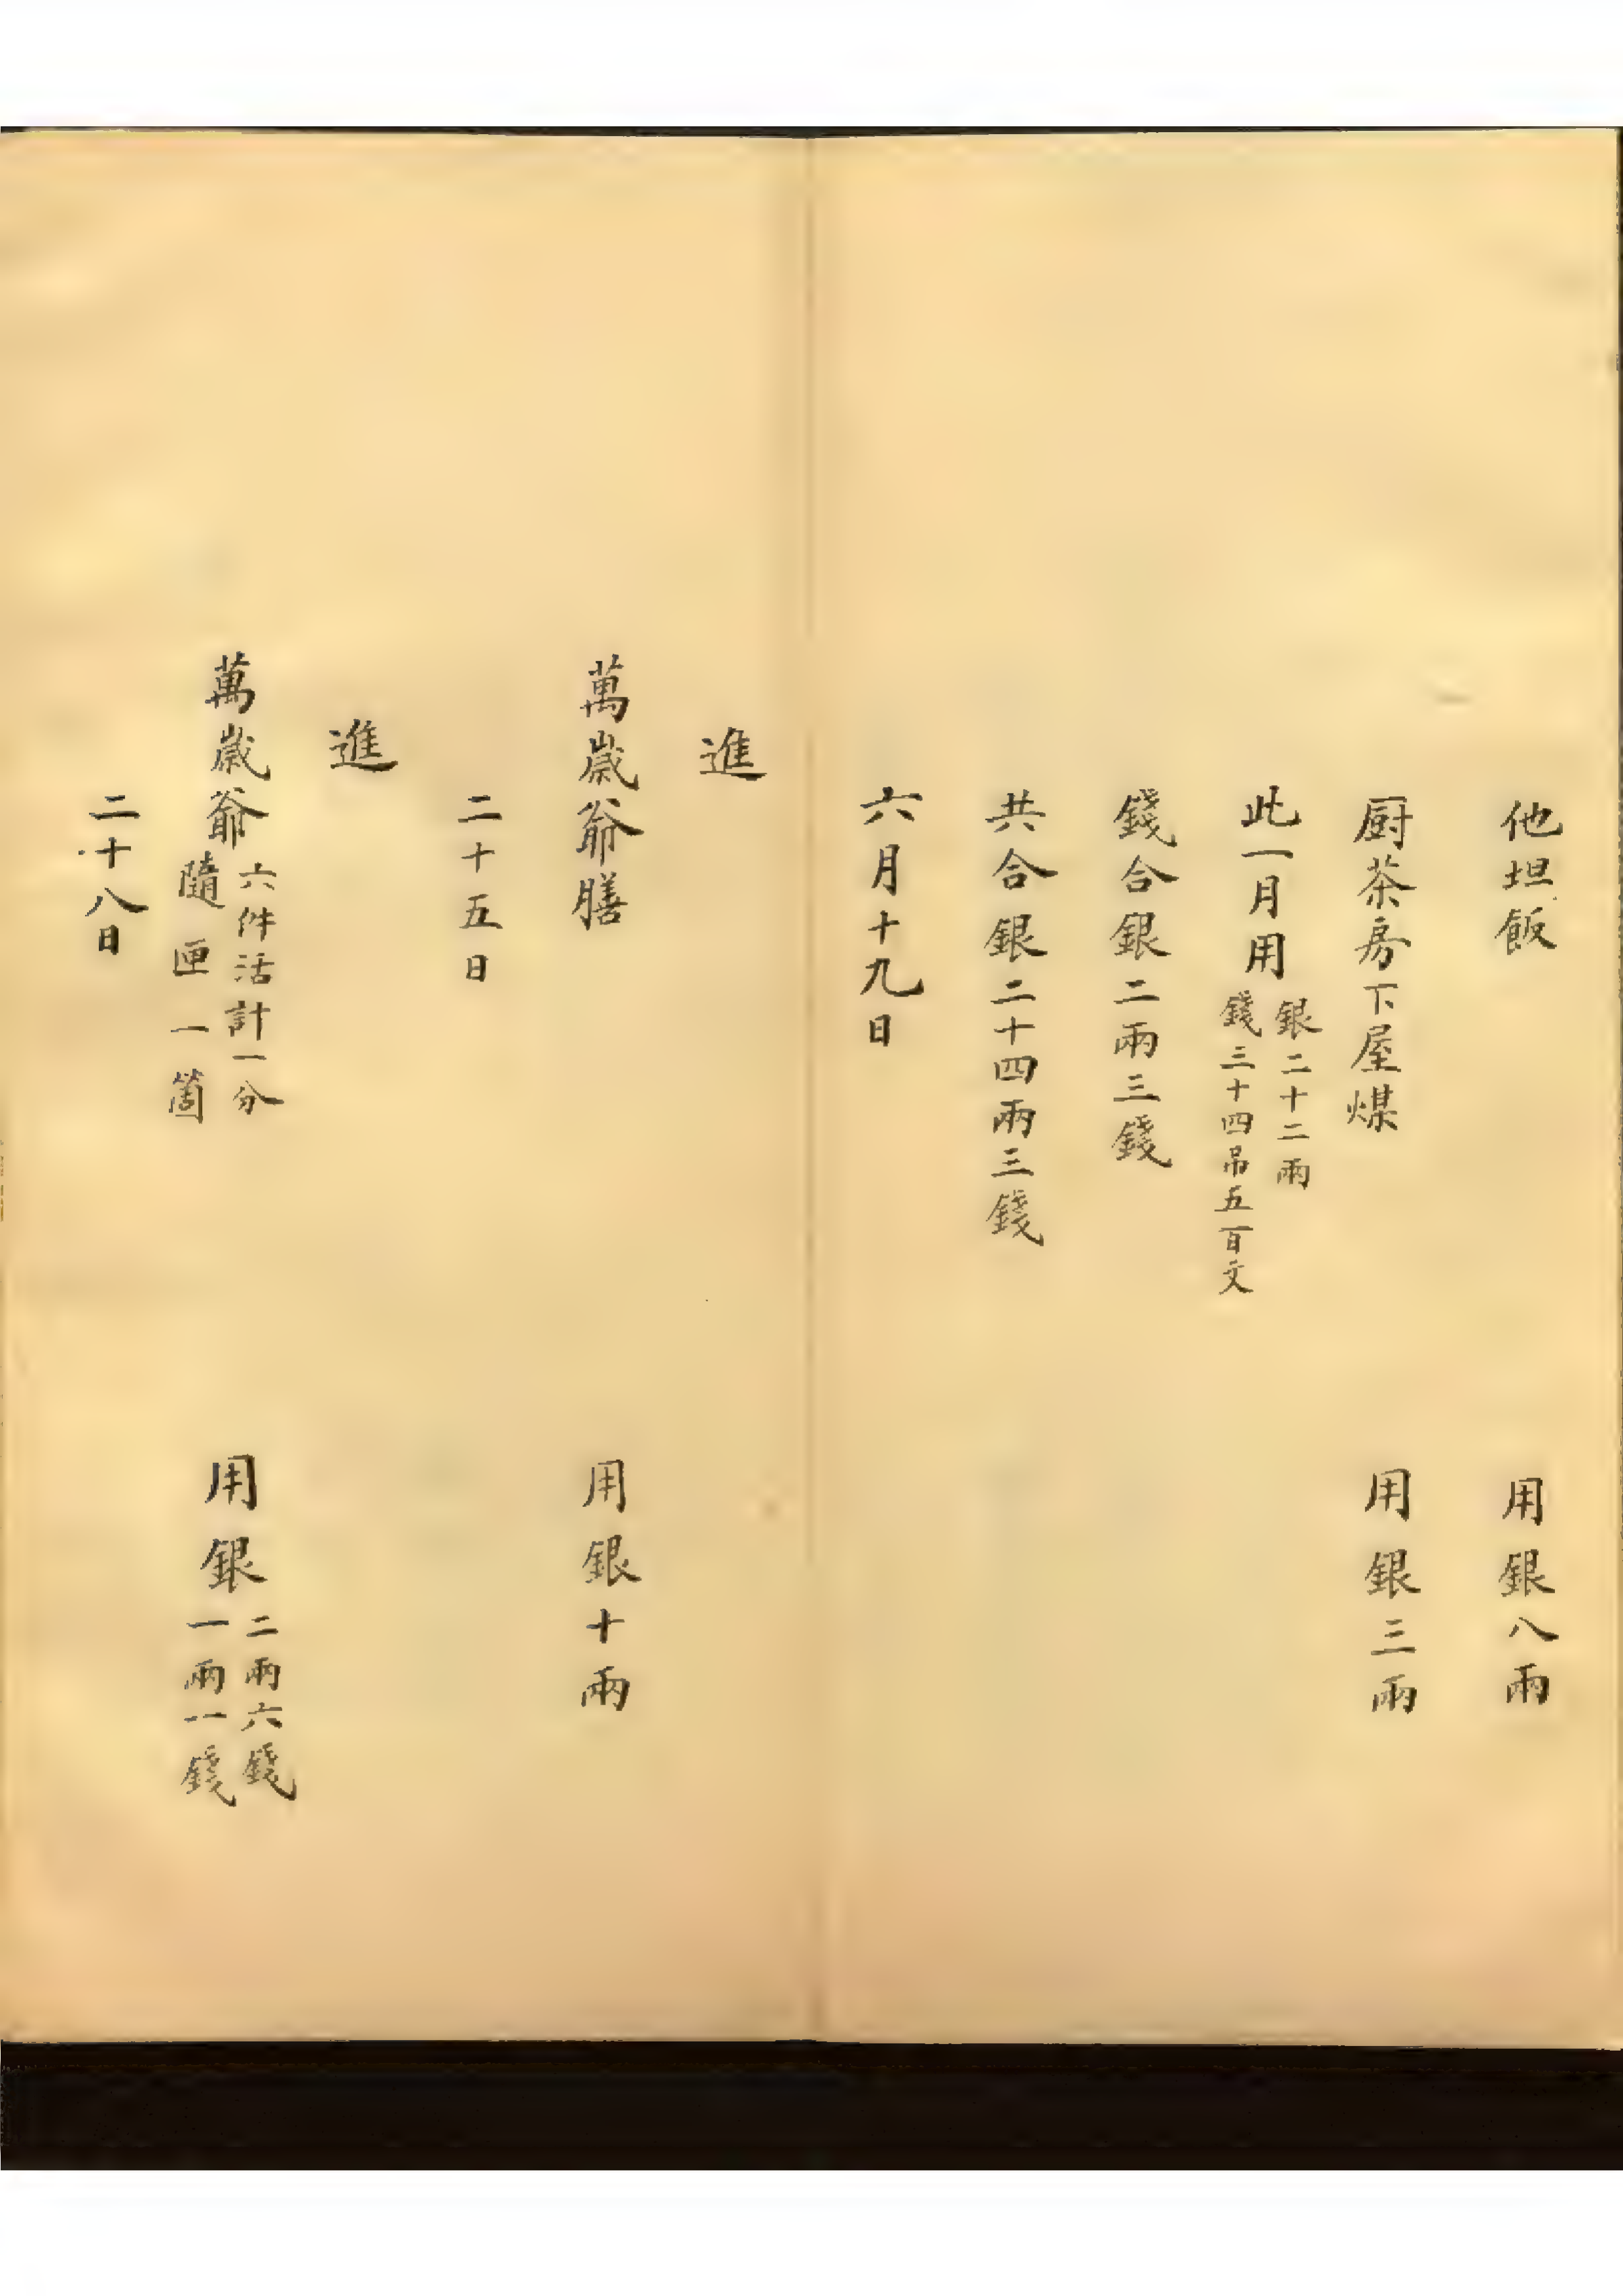 他坦飯 用銀八兩
厨茶房下屋煤 用銀三兩
此一月用 銀二十二兩 錢三十四吊五百文
錢合銀二兩三錢
共合銀二十四兩三錢
六月十九日
進
萬歲爺膳 用銀十兩
二十五日
進
萬歲爺 六件活計一分 隨匣一箇 用銀 二兩六錢 一兩一錢
二十八日